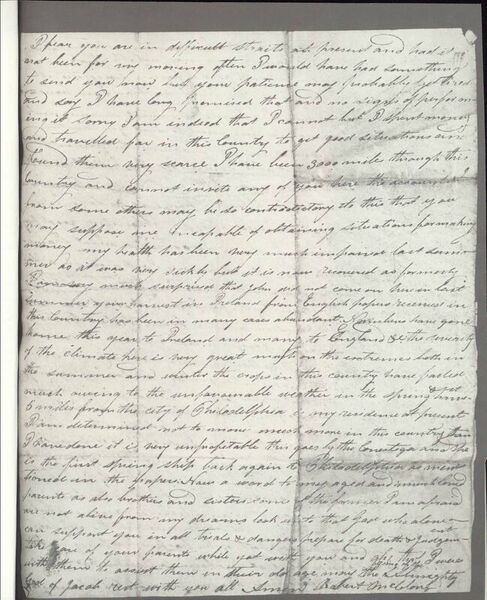 I fear you are in difficult straits at present and had it
not been for my moving often I would have had something
to send you now but your patience may probably get tired
and say I have long promised that and no signs of perform
ing it sorry I am indeed that I cannot but I spent money
and travelled far in this Country to get good situations and
found them very scarce I have been 3000 miles through this
Country and cannot invite any of you here the accounts
from some others may be so contradictory to this that you
may suppose me incapable of obtaining situations for making
money my health has been very much impaired last sum
mer as it was very sickly but it is now recovered as formerly
I was very much surprised that John did not come on here in last
summer your harvest in Ireland from English papers received in
this Country has been in many cases abundant have gone
home this year to Ireland and many to England & the severity
of the climate here is very great much on the extremes both in
the summer and winter the crops in this country have failed
much owing to the unfavourable weather in the spring &
6 miles from the city of Philadelphia is my residence at present
I am determined not to move much more in this country than
I have done it is very unprofitable this goes by the Conestoga and she
is the first spring ship back again to Philadelphia as men
tioned in the papers Now a word to my aged and much loved
parents as also brothers and sisters some of the former I am afraid
are not alive from my dreams look up to that God who alone
can support you in all trials & dangers prepare for death & judgm
take care of your parents while yet with you and oh that I were
with them to assist them in their old age may the Almighty
God of Jacob rest with you all Amen Robert